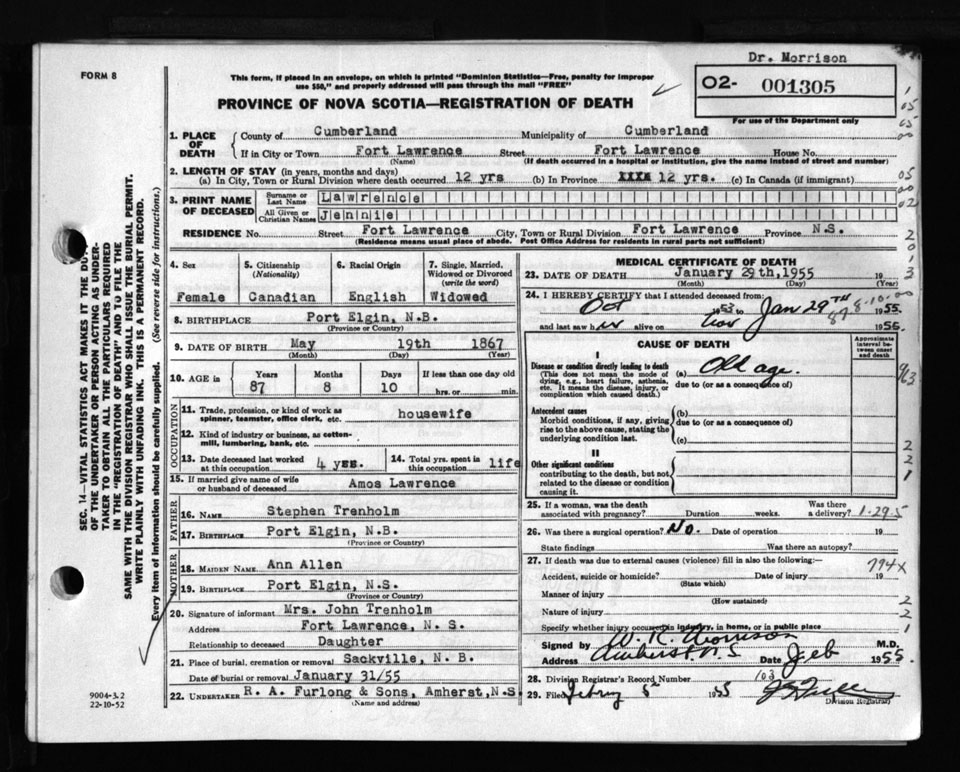 Dr. Morrison
FORM 8
This form, if placed in an envelope, on which is printed "Dominion Statistics—Free, penalty for improper
use $50," and properly addressed will pass through the mail "FREE"
02- 001305
For use of the Department only
PROVINCE OF NOVA SCOTIA—REGISTRATION OF DEATH
1. PLACE OF DEATH
County of Cumberland Municipality of Cumberland
If in City or Town Fort Lawrence Street Fort Lawrence House No.
(Name) (If death occurred in a hospital or institution, give the name instead of street and number)
2. LENGTH OF STAY (in years, months and days)
(a) In City, Town or Rural Division where death occurred 12 yrs (b) In Province XXXX 12 yrs. (c) In Canada (if immigrant)
3. PRINT NAME OF DECEASED
Surname or Last Name Lawrence
All Given or Christian Names Jennie
RESIDENCE No. Street Fort Lawrence City, Town or Rural Division Fort Lawrence Province N.S.
(Residence means usual place of abode. Post Office Address for residents in rural parts not sufficient)
4. Sex 5. Citizenship (Nationality) 6. Racial Origin 7. Single, Married, Widowed or Divorced (write the word)
Female Canadian English Widowed
8. BIRTHPLACE Port Elgin, N.B.
(Province or Country)
9. DATE OF BIRTH May 19th 1867
(Month) (Day) (Year)
10. AGE in Years Months Days If less than one day old
87 8 10 hrs. or min.
OCCUPATION
11. Trade, profession, or kind of work as
spinner, teamster, office clerk, etc. housewife
12. Kind of industry or business, as cotton-
mill, lumbering, bank, etc.
13. Date deceased last worked
at this occupation 4 yrs. 14. Total yrs. spent in
this occupation life
15. If married give name of wife
or husband of deceased Amos Lawrence
FATHER
16. NAME Stephen Trenholm
17. BIRTHPLACE Port Elgin, N.B.
(Province or Country)
MOTHER
18. MAIDEN NAME Ann Allen
19. BIRTHPLACE Port Elgin, N.S.
(Province or Country)
20. Signature of informant Mrs. John Trenholm
Address Fort Lawrence, N. S.
Relationship to deceased Daughter
21. Place of burial, cremation or removal Sackville, N. B.
Date of burial or removal January 31/55
22. UNDERTAKER R. A. Furlong & Sons, Amherst,N.S.
(Name and address)
MEDICAL CERTIFICATE OF DEATH
23. DATE OF DEATH January 29th,1955 19
(Month) (Day) (Year)
24. I HEREBY CERTIFY that I attended deceased from:
Oct 1953 to Jan 29TH 1955.
and last saw her alive on Nov 1956.
87 8-10-00
CAUSE OF DEATH
Approximate interval between onset and death
I
Disease or condition directly leading to death
(This does not mean the mode of
dying, e.g., heart failure, asthenia,
etc. It means the disease, injury, or
complication which caused death.)
(a) Old age.
due to (or as a consequence of)
Antecedent causes
Morbid conditions, if any, giving
rise to the above cause, stating the
underlying condition last.
(b)
due to (or as a consequence of)
(c)
II
Other significant conditions
contributing to the death, but not
related to the disease or condition
causing it.
25. If a woman, was the death Was there
associated with pregnancy? Duration weeks. a delivery? 1-29-5
26. Was there a surgical operation? No. Date of operation 19
State findings Was there an autopsy?
27. If death was due to external causes (violence) fill in also the following:—
794x
Accident, suicide or homicide? Date of injury 19
(State which)
Manner of injury
(How sustained)
Nature of injury
Specify whether injury occurred in industry, in home, or in public place
Signed by W. R. Morrison M.D.
Address Amherst N.S. Date Feb 1955.
28. Division Registrar's Record Number 103
29. Filed 1955
Division Registrar
SEC. 14—VITAL STATISTICS ACT MAKES IT THE DUTY
OF THE UNDERTAKER OR PERSON ACTING AS UNDER-
TAKER TO OBTAIN ALL THE PARTICULARS REQUIRED
IN THE "REGISTRATION OF DEATH" AND TO FILE THE
SAME WITH THE DIVISION REGISTRAR WHO SHALL ISSUE THE BURIAL PERMIT.
WRITE PLAINLY WITH UNFADING INK. THIS IS A PERMANENT RECORD.
Every item of information should be carefully supplied. (See reverse side for instructions.)
9004-3.2
22-10-52
1
05
05
00
05
00
02
2
0
1
3
963
2
2
1
2
2
1